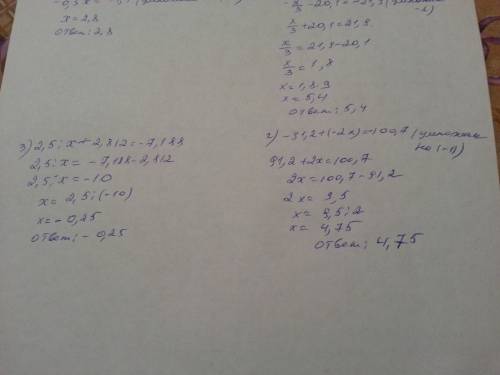 x = 2,8
ответ: 2,8
x/3 + 20,1 = 21,9
x/3 = 21,9 - 20,1
x/3 = 1,8
x = 1,8 · 3
x = 5,4
ответ: 5,4
3) 2,5 : x + 2,812 = -7,188
2,5 : x = -7,188 - 2,812
2,5 : x = -10
x = 2,5 : (-10)
x = -0,25
ответ: -0,25
г) -91,2 + (-2x) = -100,7 (умножаем на (-1))
91,2 + 2x = 100,7
2x = 100,7 - 91,2
2x = 9,5
x = 9,5 : 2
x = 4,75
ответ: 4,75